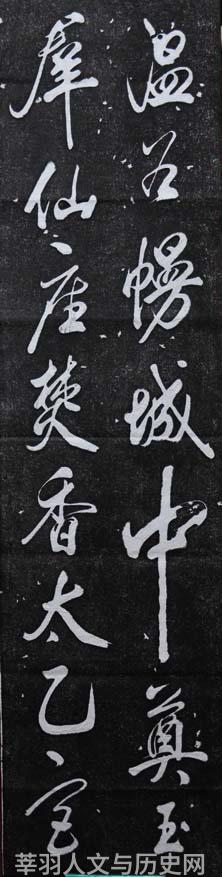 温谷幔城中奠玉
群仙座焚香太乙宫
莘羽人文与历史网